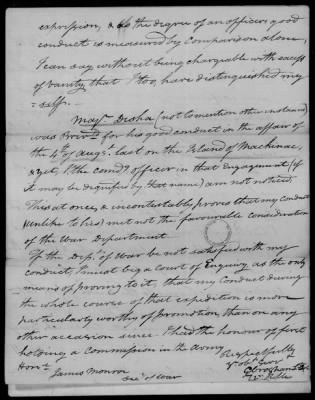 expression, & as the degree of an officers good
conduct is measured by Comparison alone,
I can say without being chargable with excess
of vanity that I too, have distinguished my
-self.
Majr. Desha (not to mention other instances)
was Brevtd for his good conduct in the affair of
the 4th of augt. last on the Island of Machinac,
& yet, I the comdg officer in that Engagement (if
it may be dignified by that name) am not noticed.
This at once, & incontestably proves that my conduct
(unlike to his) met not the favourable consideration
of the War Department
If the Dept. of War be not satisfied with my
conduct, I must beg a Court of Enquiry as the only
means of proving to it, that my Conduct during
the whole course of that expedition is more
particularly worthy of promotion, than on any
other occasion since I had the honour of first
holding a Commission in the Army
Respectfully
Honl.
yr obt Servt
James Monroe
Sec of War